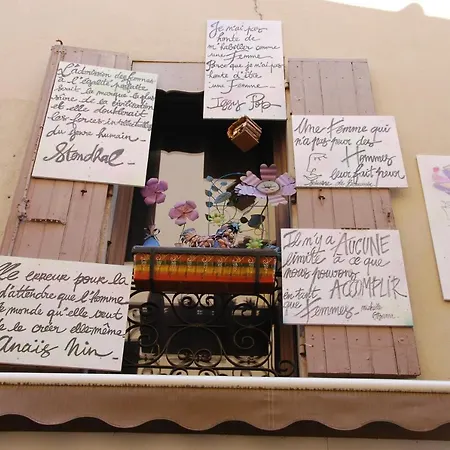 L'admission des femmes
à l'égalité parfaite
serait la marque la plus
sûre de la civilisation
et elle doublerait
les forces intellectuelles
du genre humain.
Stendhal
Je n'ai pas
honte de
m'habiller comme
une Femme
Parce que je n'ai pas
honte d'être
une Femme
Iggy Pop
Une Femme qui
n'a pas peur des
Hommes
leur fait peur
Simone de Beauvoir
Il n'y a AUCUNE
limite à ce que
nous pouvons
ACCOMPLIR
en tant
que Femmes
Michelle
Obama
lle erreur pour la
d'attendre que l'homme
monde qu'elle veut
de le créer elle-même
Anaïs Nin